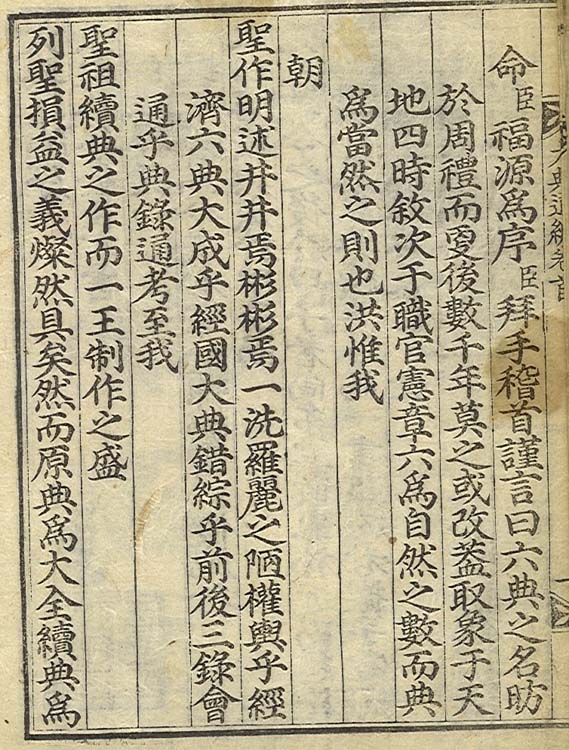 大典通編卷首
命臣福源爲序臣拜手稽首謹言曰六典之名昉
於周禮而爰後數千年莫之或改蓋取象于天
地四時敘次于職官憲章六爲自然之數而典
爲當然之則也洪惟我
朝
聖作明述井井焉彬彬焉一洗羅麗之陋權輿乎經
濟六典大成乎經國大典錯綜乎前後三錄會
通乎典錄通考至我
聖祖續典之作而一王制作之盛
列聖損益之義燦然具矣然而原典爲大全續典爲